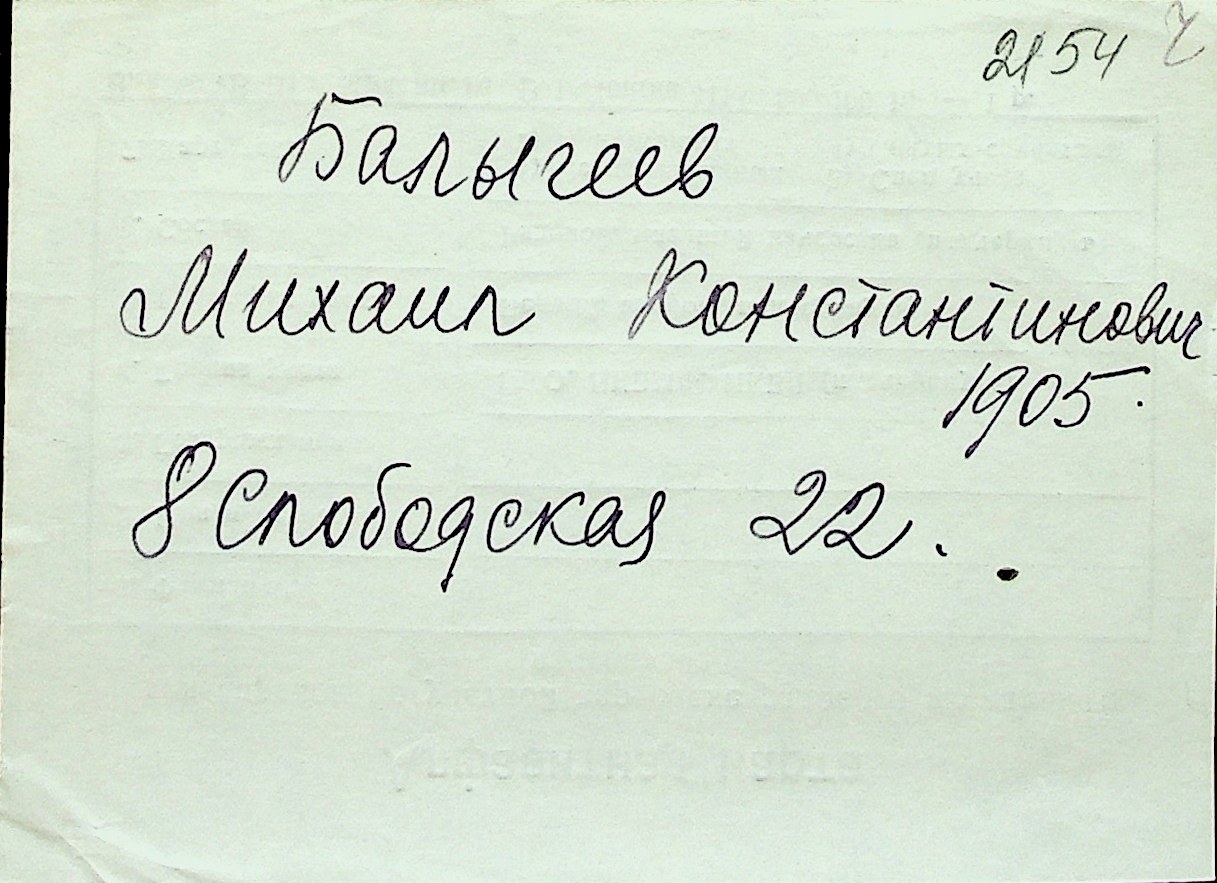 2154
Балыгеев
Михаил Константинович
1905.
8 Слободская 22.